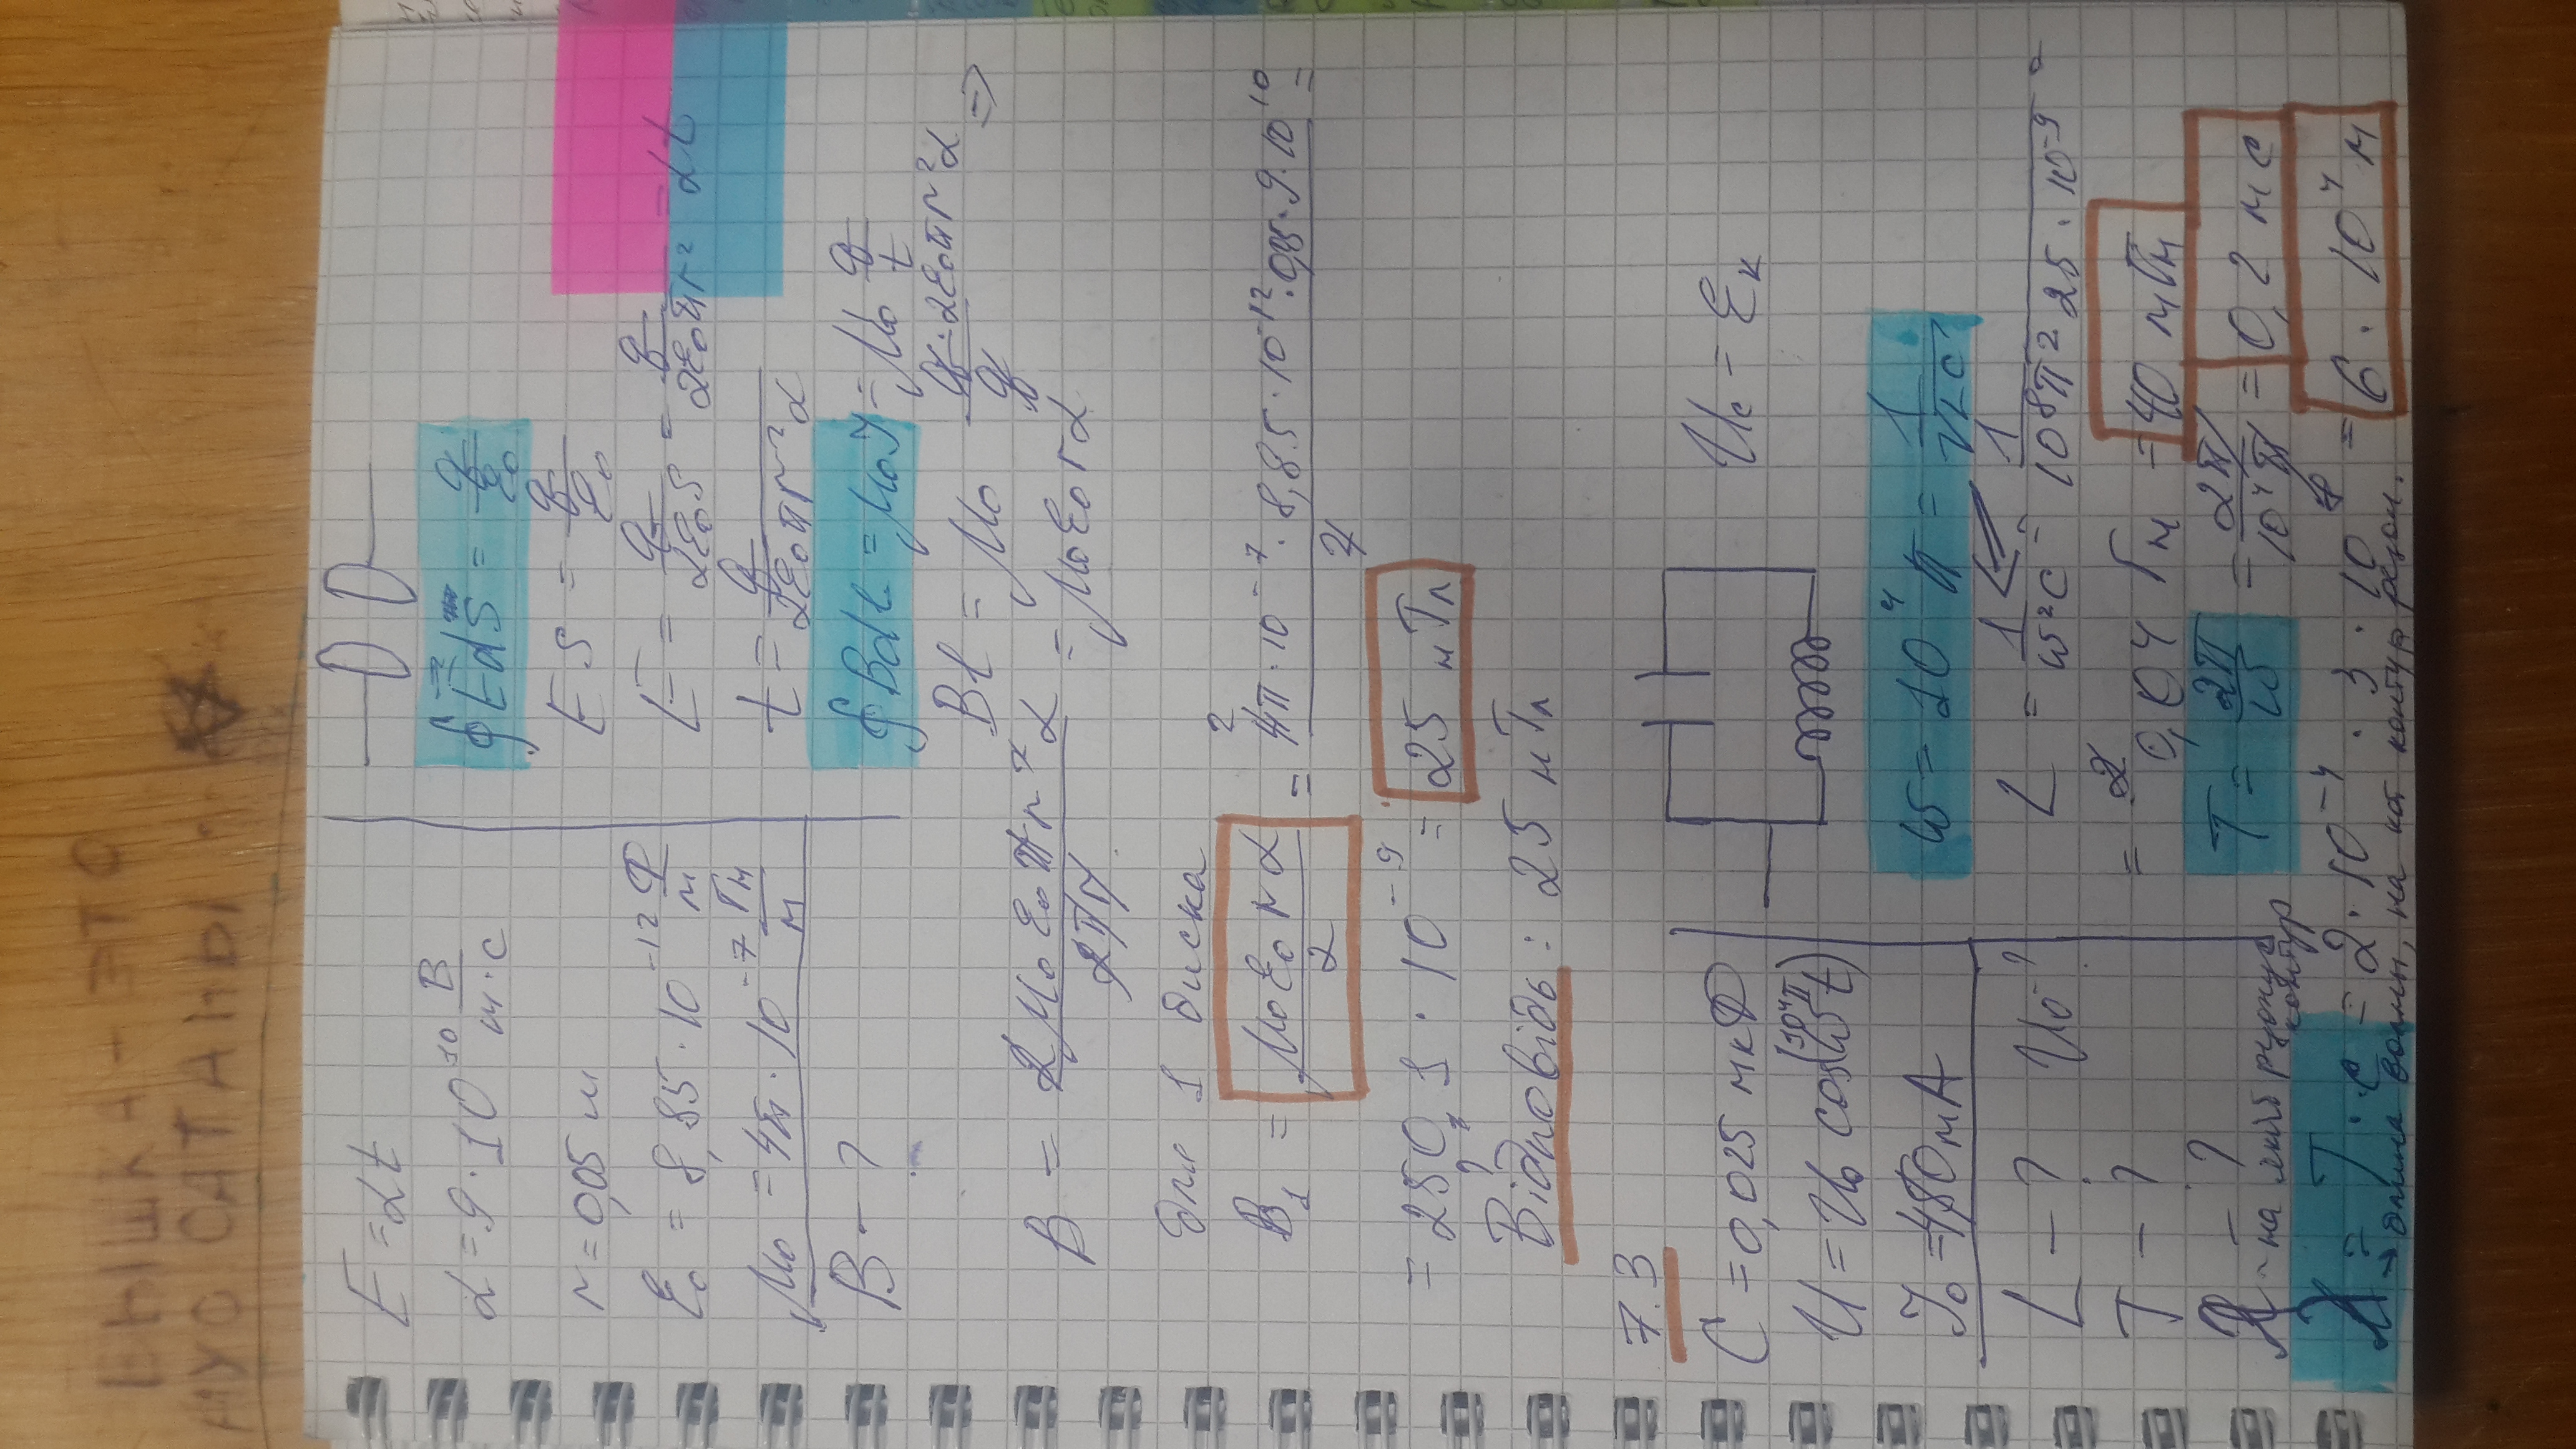 ВЫШКА - ЭТО
САТАНЫ
E = αt
α = 9 · 10^10 В/м·с
r = 0,05 м
ε₀ = 8,85 · 10^-12 Ф/м
μ₀ = 4π · 10^-7 Гн/м
B - ?
∮ E dS = q/ε₀
ES = q/ε₀
E = q/2ε₀S = q/2ε₀πr² = αt
t = q/2ε₀πr²α
∮ Bdl = μ₀I = μ₀ q/t
Bl = μ₀ q·2ε₀πr²α/q =>
B = 2μ₀ε₀πr²α/2πr = μ₀ε₀rα
для 1 диска
B₁ = μ₀ε₀rα/2 = 4π·10^-7 · 8,85·10^-12 · 0,05 · 9·10^10/2 =
= 250,1 · 10^-9 = 25 нТл
Відповідь: 25 нТл
7.3
C = 0,025 мкФ
U = U₀ cos(10⁴π t)
I₀ = 450 мА
L - ? U₀ - ?
T - ?
λ - ?
на який резонує контур
U_c = ε_к
ω = 10⁴π = 1/√LC
L = 1/ω²C = 1/10⁸π² 25·10^-9 =
= 0,04 Гн = 40 мГн
T = 2π/ω = 2π/10⁴π = 0,2 мс
λ = T · c = 2·10^-4 · 3·10^8 = 6·10⁴ м
→ длина волны, на кот контур резон.